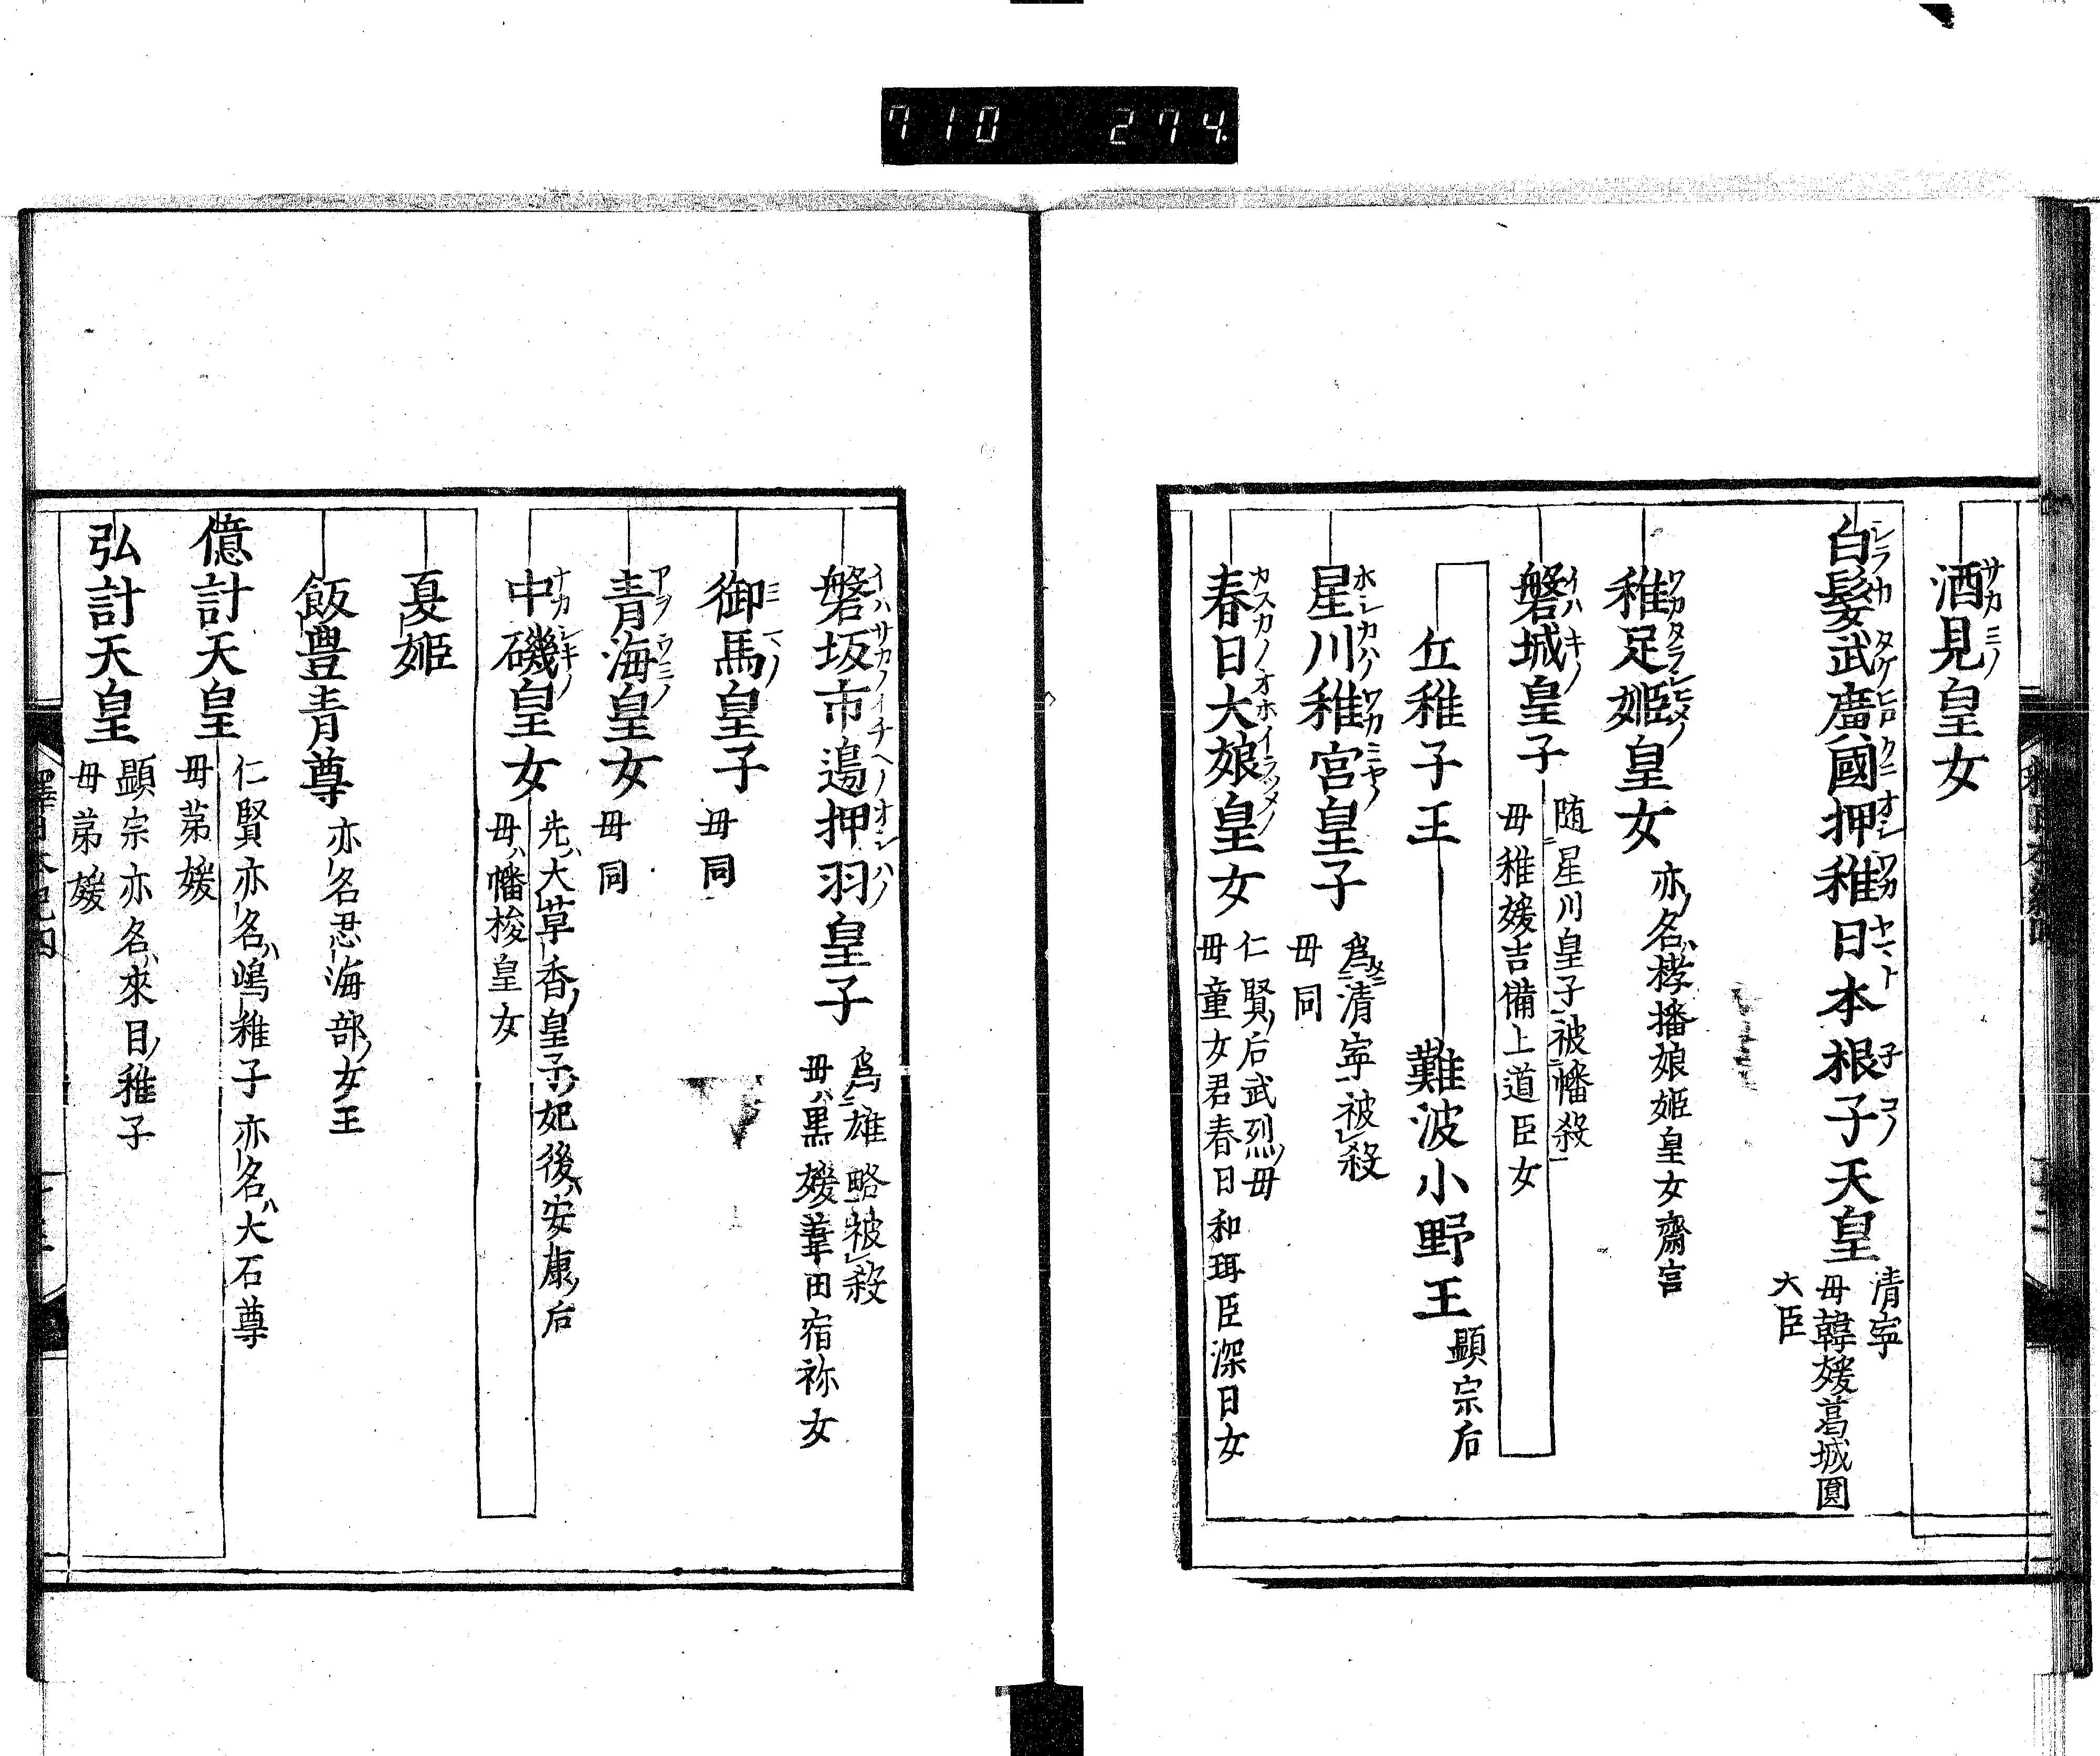 710 274
酒見皇女
白髮武廣國押稚日本根子天皇
清寧
母韓媛葛城圓
大臣
稚足姬皇女
亦名栲幡娘姬皇女齋宮
磐城皇子
随星川皇子被幡殺
母稚媛吉備上道臣女
丘稚子王
難波小野王
顯宗后
星川稚宮皇子
爲清寧被殺
母同
春日大娘皇女
仁賢后武烈母
母童女君春日和珥臣深日女
磐坂市邊押羽皇子
爲雄略被殺
母黒媛葦田宿祢女
御馬皇子
母同
青海皇女
母同
中磯皇女
先大草香皇子妃後安康后
母幡梭皇女
夏姬
飯豊青尊
亦名忍海部女王
億計天皇
仁賢亦名嶋稚子亦名大石尊
母荑媛
弘計天皇
顯宗亦名來目稚子
母荑媛